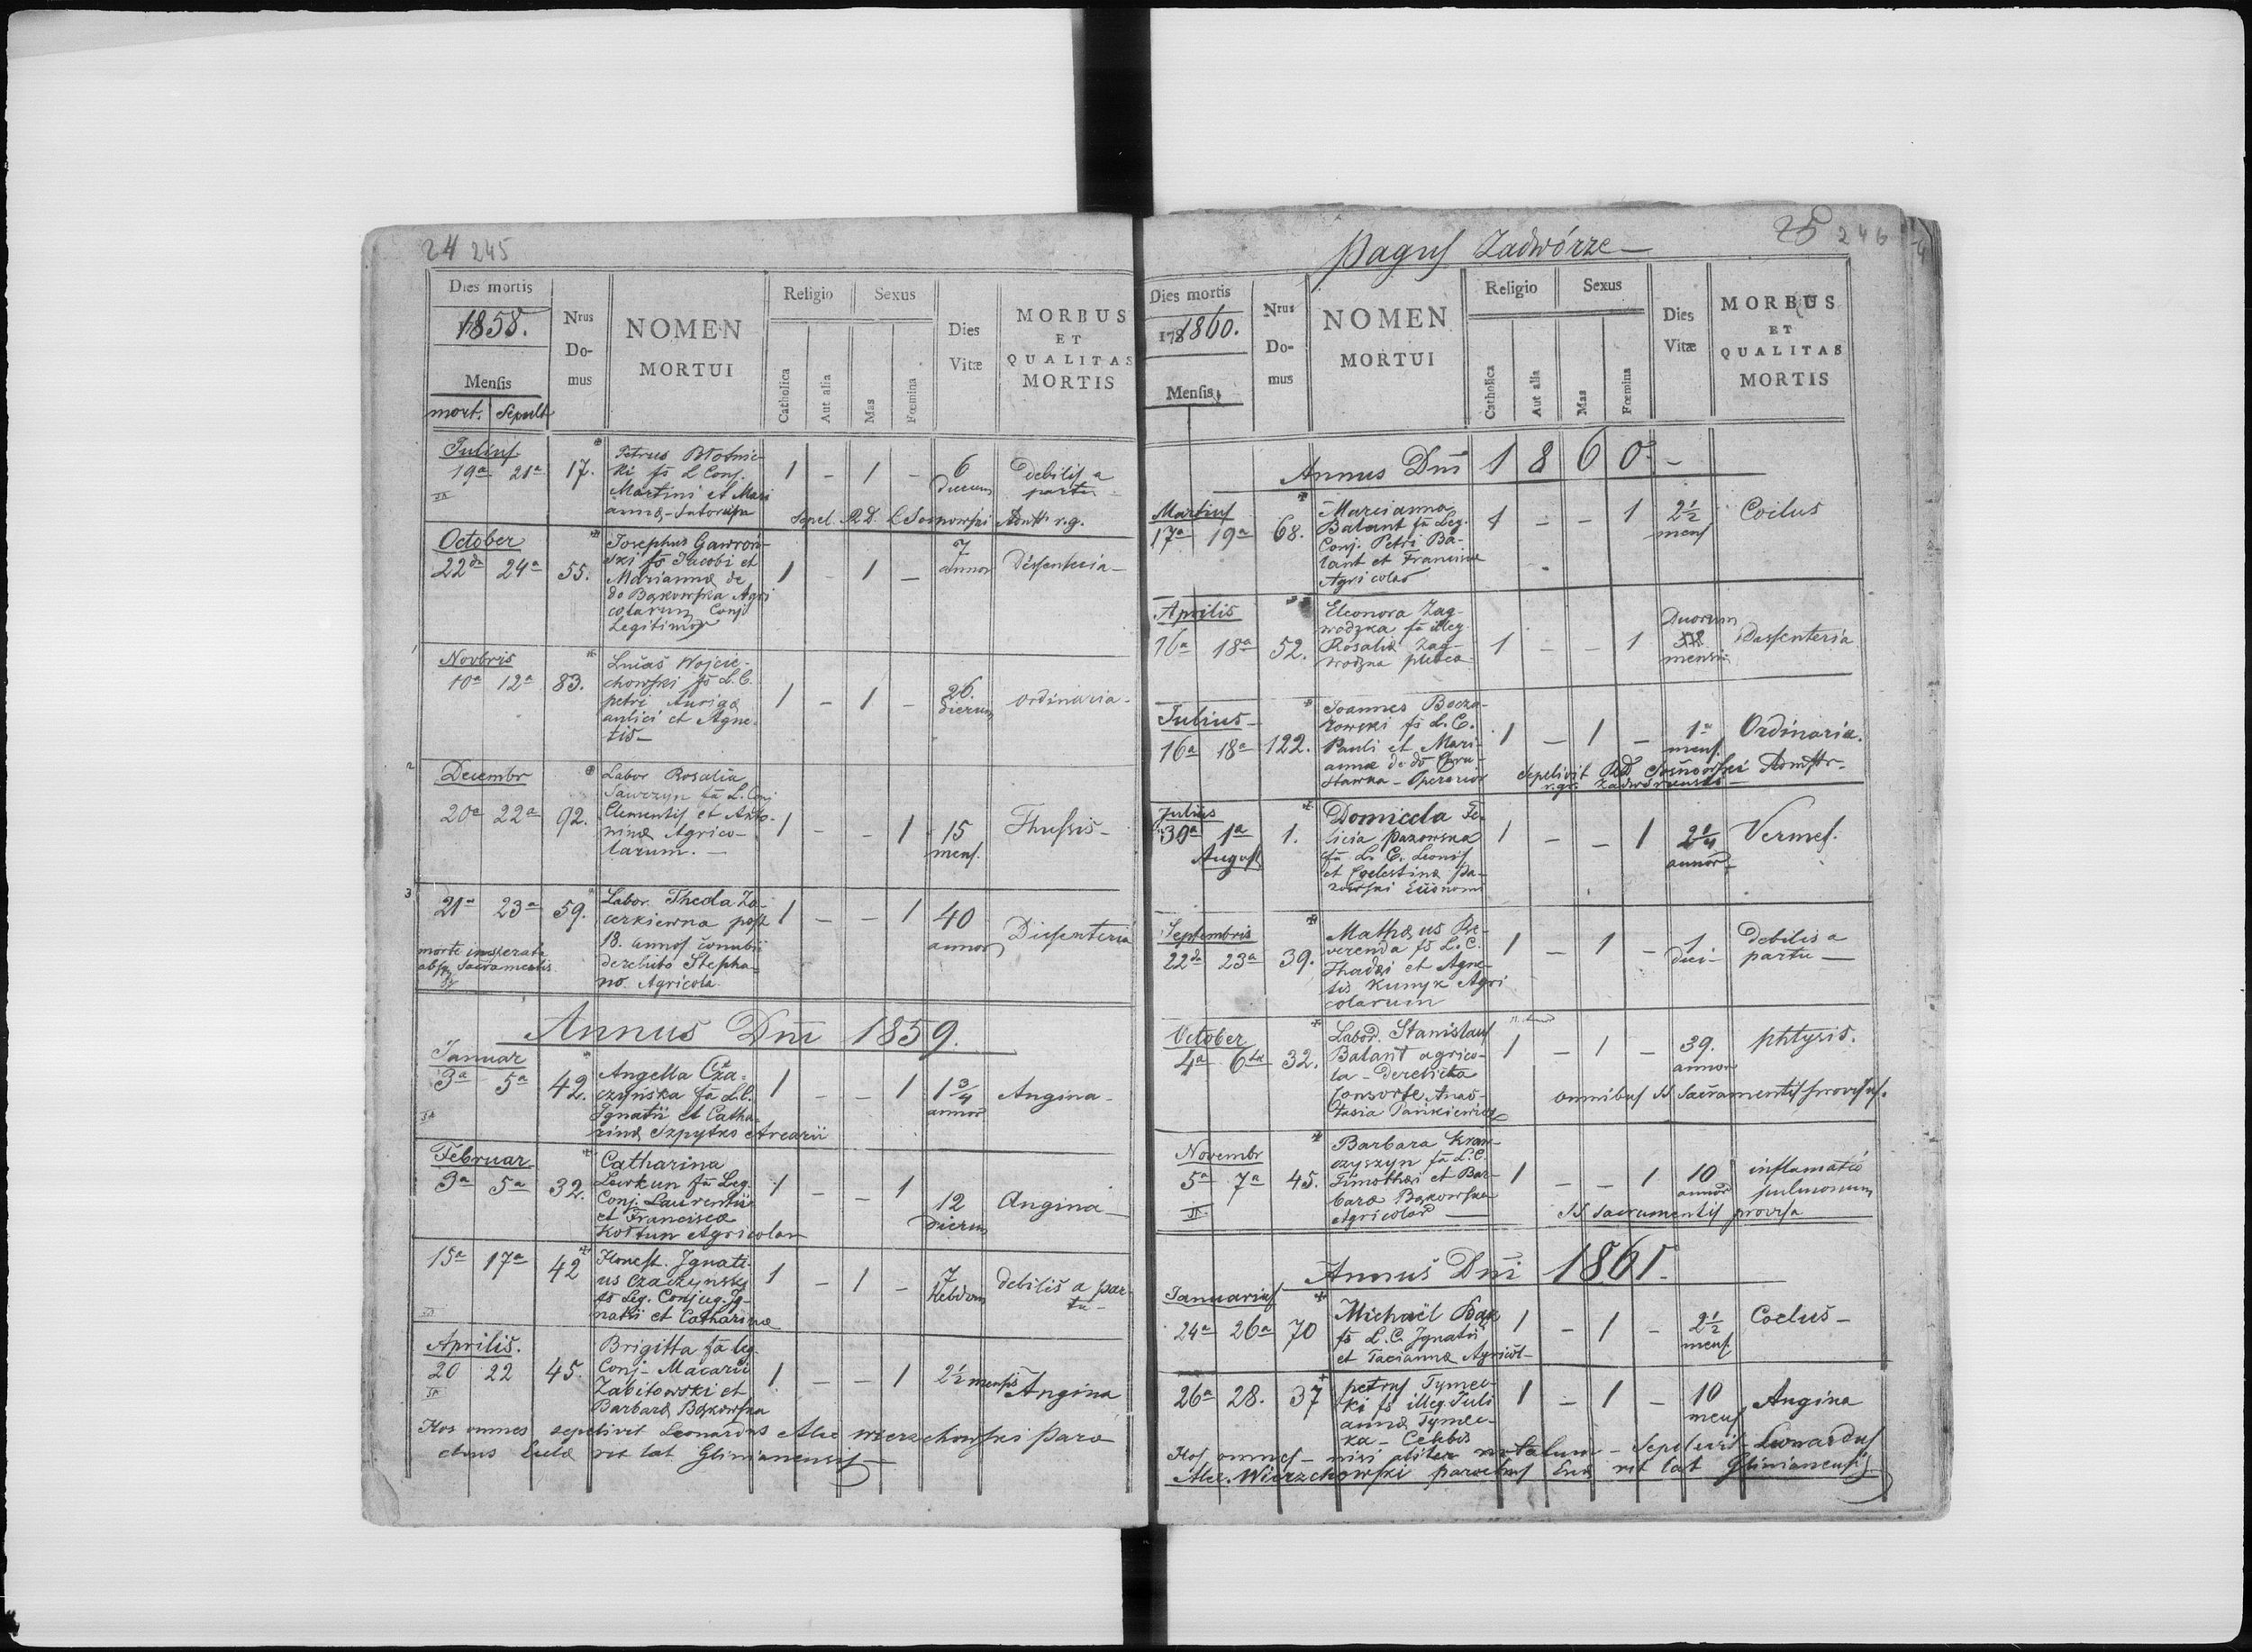 24 245
Dies mortis
1858.
Mensis
mort. Sepult
Nrus
Do-
mus
NOMEN
MORTUI
Religio
Catholica
Aut alia
Sexus
Mas
Fœmina
Dies
Vitæ
MORBUS
ET
QUALITAS
MORTIS
Julius
19a 21a 17. Petrus Błotnic-
ki fs L Conj.
Martini et Mari
annæ
1 - 1 - 6
dierum
debilis a
partu
Sepel. R.D. Admtr r.g.
October
22da 24a 55. Josephus Gawroń-
ski fs Jacobi et
Mariannæ de
do Bąkowska Agri
colarum Conj
Legitimor
1 - 1 - 7
annor
Dissenteria-
1
Novbris
10a 12a 83. Lucas Wojcie-
chowski fs L.C.
petri Aurigæ
aulici et Agne-
tis-
1 - 1 - 26.
dierum
ordinaria-
2
Decembr
20a 22a 92. Labor Rosalia
Sawczyn fa L. Conj
Clementis et Anto-
ninæ Agrico-
larum.-
1 - - 1 15
mens.
Thussis-
3
21a 23a 59. Labor. Thecla
post
18. annos conubii
derelicto Stepha-
no Agricola
1 - - 1 40
annor
Dissenteria
morte insperata
absq Sacramentis
Annus Dni 1859.
Januar
3a 5a 42. Angella Cza-
czyńska fa L.C.
Ignatii et Catha-
rinæ Szpytko
1 - - 1 1 3/4
annor
Angina-
Februar
3a 5a 32. Catharina
fa Leg.
Conj. Laurentii
et Franciscæ
Kołtun Agricolar
1 - - 1 12
dierum
Angina-
15a 17a 42 Honest. Ignati-
us Czaczynski
fs Leg. Conjug. Ig-
natii et Catharinæ
1 - 1 - 7
Hebdom
debilis a par-
tu-
Aprilis.
20 22 45. Brigitta fa leg
Conj- Macarii
Zabitowski et
Barbaræ Bąkowska
1 - - 1 2 1/2 mensis
Angina
Hos omnes sepelivit Leonardus Alex wierzchowski Paro
chus rit lat Glinianensis-
Pagus Zadwórze-
25 246
Dies mortis
178 1860.
Mensis
Nrus
Do-
mus
NOMEN
MORTUI
Religio
Catholica
Aut alia
Sexus
Mas
Fœmina
Dies
Vitæ
MORBUS
ET
QUALITAS
MORTIS
Annus Dni 1860.-
Martius
17a 19a 68. Marianna
Balant fa Leg.
Conj. Petri Ba-
lant et Franciscæ
Agricolar
1 - - 1 2 1/2
mens
Coelus
Aprilis
16a 18a 52. Eleonora Zag-
wodzka fa illeg
Rosaliæ Zag-
wodzka
1 - - 1 Duorum
mensium
Dassenteria
Julius-
16a 18a 122. Joannes
fs L.C.
Pauli et Mari-
annæ de do
1 - 1 - 1a
mens.
Ordinaria.
Sepelivit RD Admstr-
r.gr. Zadworzensis-
Julius
30a 1a 1.
August
Domicela Fe-
licia Pazowska
fa L. C. Leonis
et Coelestinæ Pa-
zowski
1 - - 1 2 1/4
annor-
Vermes.
Septembris
22da 23a 39. Mathæus Re-
verenda fs L.C.
Thadæi et Agne-
tis Kunyk Agri
colarum
1 - 1 - 1
diei-
Debilis a
partu-
October
4a 6ta 32. Labor. Stanislaus
Balant agrico-
la- Derelicta
Consorte Anas-
tasia Pankiewicz
1 - 1 - 39.
annor
phtysis.
omnibus SS Sacramentis provisus.
Novembr
5a 7a 45. Barbara Kraw-
czyszyn fa L.C.
Timothæi et Bar-
baræ Bąkowska
Agricolar-
1 - - 1 10
annor
inflamatio
pulmonum
SS Sacramentis provisa
Annus Dni 1861.
Januarius
24a 26a 70 Michaël Bąk
fs L.C. Ignatii
et Tacianna Agricol-
1 - 1 - 2 1/2
mens.
Coelus-
26a 28. 37 petrus Tymec-
ki fs illeg. Juli
annæ Tymec-
ka-
1 - 1 - 10
mens
Angina
Hos omnes- nisi aliter notatum- Sepelivit- Leonardus
Alex. Wierzchowski parochus rit lat Glinianensis